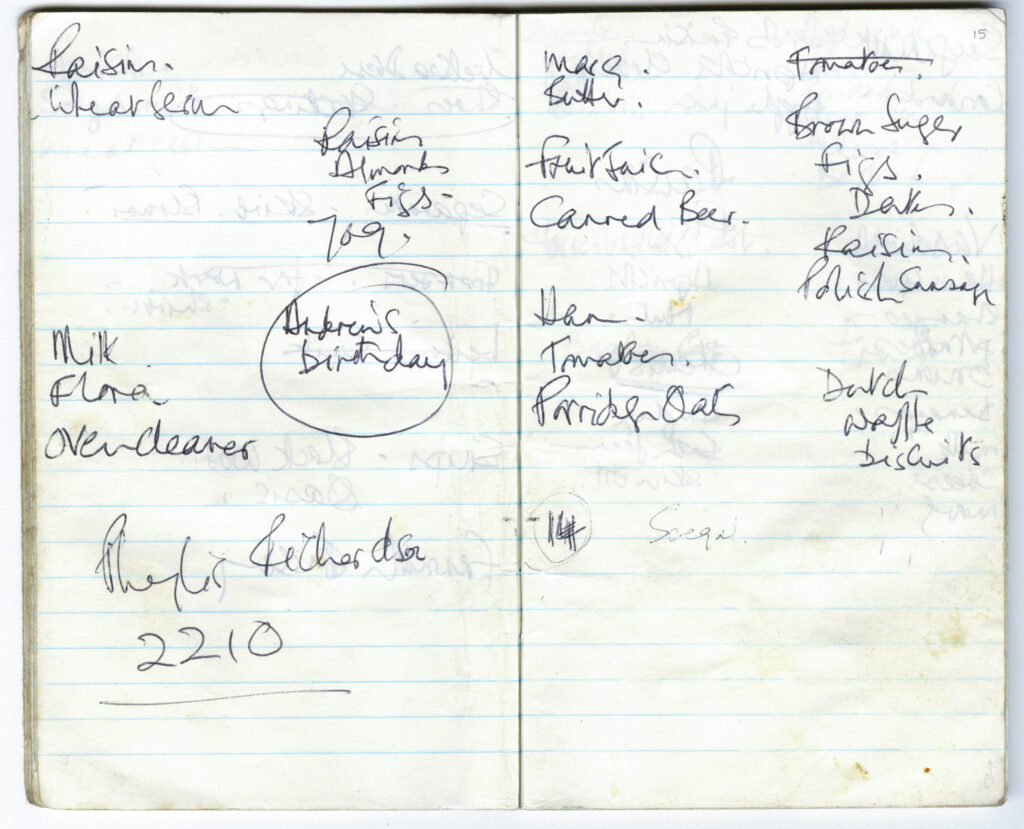 Raisins.
Wheatgerm
Raisins
Almonds
Figs-
Yog.
Andrew's
birthday
Milk
Flora
Oven cleaner
Phyllis Richardson
2210
15
Marg.
Butter.
Fruit Juice.
Canned Beer.
Ham.
Tomatoes.
Porridge Oats
14
Tomatoes.
Brown Suger
Figs.
Dates.
Raisins.
Polish Sausage
Dutch
Waffle
Biscuits